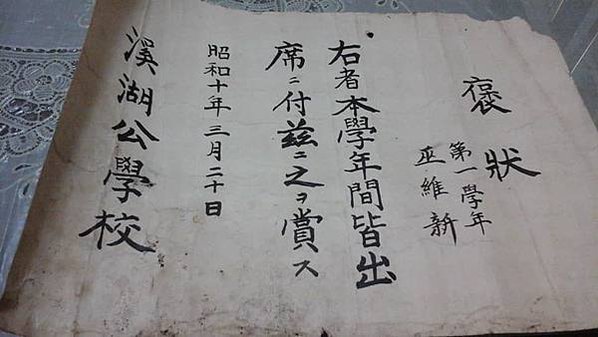 褒狀
第一學年
巫維新
右者本學年間皆出
席ニ付茲ニ之ヲ賞ス
昭和十年三月二十日
溪湖公學校